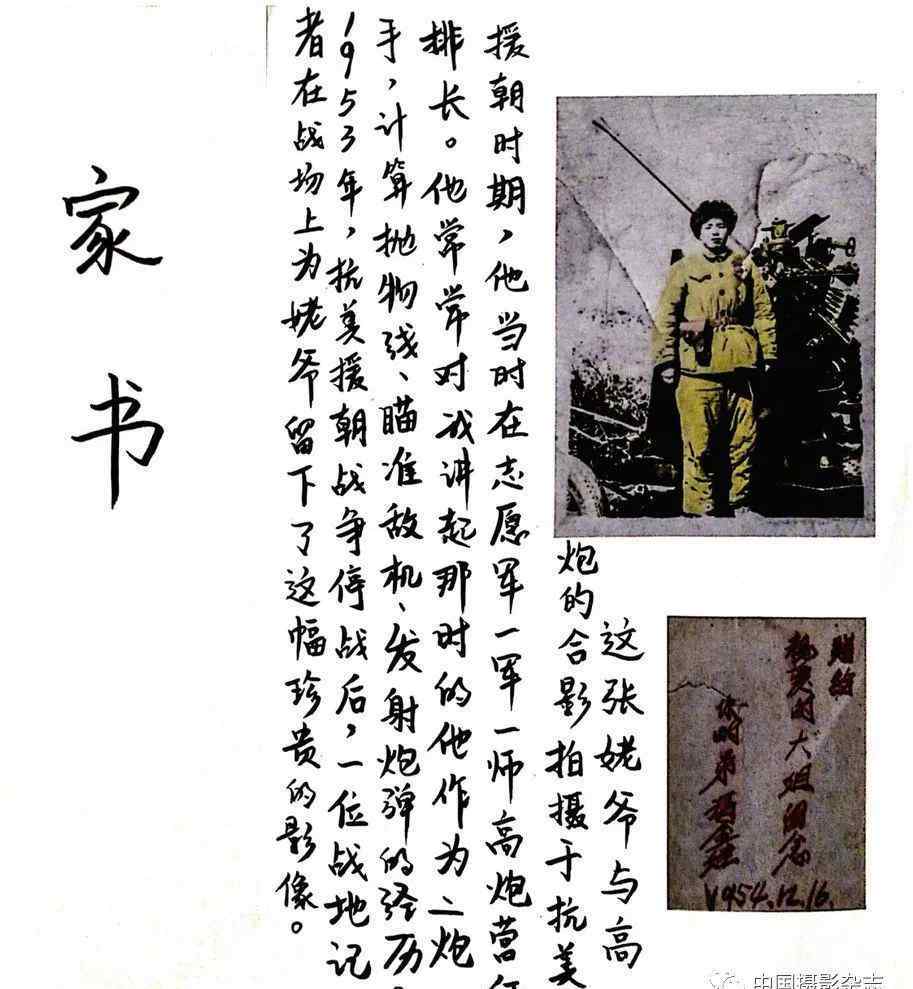 家书
这张姥爷与高
炮的合影拍摄于抗美
援朝时期，他当时在志愿军一军一师高炮营任
排长。他常常对我讲起那时的他作为二炮
手，计算抛物线、瞄准敌机、发射炮弹的经历。
1953年，抗美援朝战争停战后，一位战地记
者在战场上为姥爷留下了这幅珍贵的影像。
赠给
大姐留念
弟
1954.12.16.
中国摄影杂志